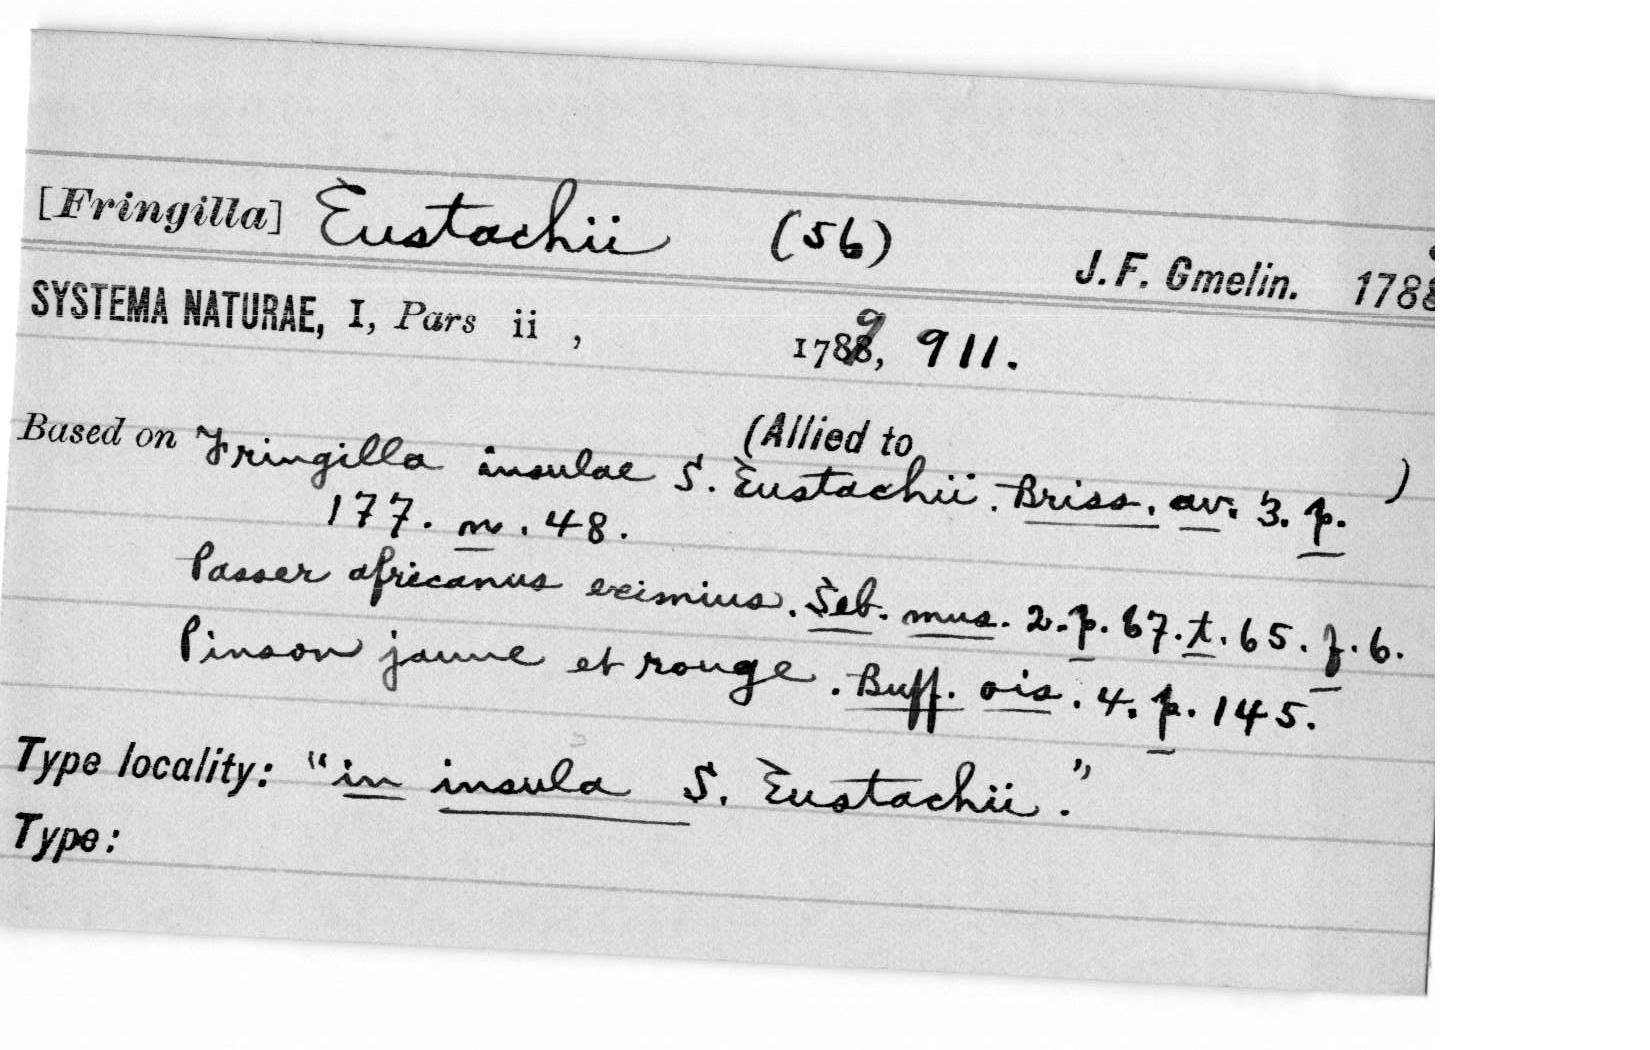 [Fringilla] Eustachii (56)
J. F. Gmelin. 1788
SYSTEMA NATURAE, I, Pars ii , 1789, 911.
(Allied to )
Based on Fringilla insulae S. Eustachii. Briss. av. 3. p.
177. n. 48.
Passer africanus eximius. Seb. mus. 2. p. 67. t. 65. f. 6.
Pinson jaune et rouge. Buff. ois. 4. p. 145.
Type locality: "in insula S. Eustachii."
Type: